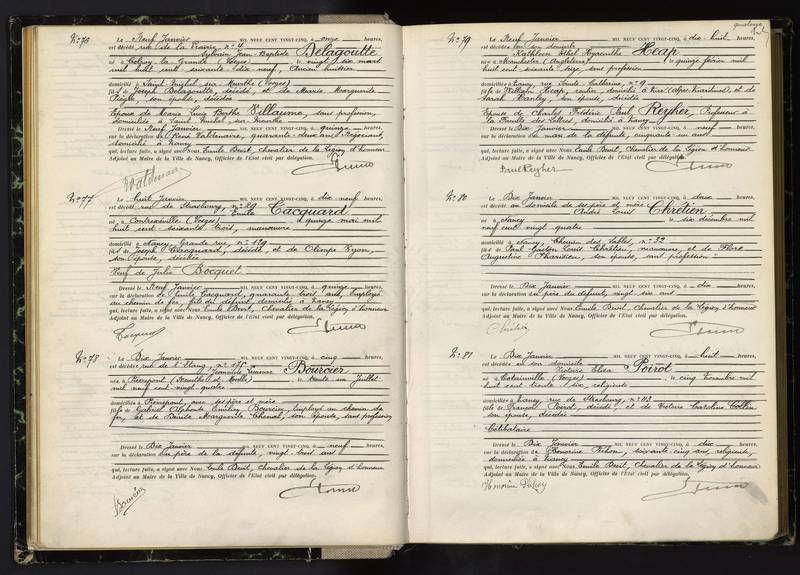 N° 76
Le Neuf Janvier MIL NEUF CENT VINGT-CINQ, à onze heures,
est décédé rue de la Prairie n° 4
Sylvain Jean-Baptiste Delagoutte
né à (Vosges) le vingt six mars
mil huit cent soixante dix neuf, Ancien huissier
domicilié à Saint Michel sur Meurthe (Vosges)
fils de Joseph Delagoutte, décédé, et de Marie Marguerite
son épouse, décédée
Epoux de Maria Berthe Villaume, sans profession,
domiciliée à Saint Michel sur Meurthe
Dressé le Neuf Janvier MIL NEUF CENT VINGT-CINQ, à quinze heures,
sur la déclaration de René Valdenaire, quarante deux ans, Négociant
domicilié à Nancy
qui, lecture faite, a signé avec Nous Emile Beuit, Chevalier de la Légion d'honneur
Adjoint au Maire de la Ville de Nancy, Officier de l'Etat civil par délégation.
N° 77
Le huit Janvier MIL NEUF CENT VINGT-CINQ, à dix neuf heures,
est décédé rue de Strasbourg, n°
Emile Cacquard
né à Contrexéville (Vosges) le quinze mai mil
huit cent soixante trois, manœuvre
domicilié à Nancy, Grande rue n° 129
fils de Joseph Cacquard, décédé, et de Olimpe
son épouse, décédée
Veuf de Julie Bocquel
Dressé le Neuf Janvier MIL NEUF CENT VINGT-CINQ, à quinze heures,
sur la déclaration de Emile Cacquard, quarante trois ans, Employé
au chemin de fer, fils du défunt, domicilié à Nancy
qui, lecture faite, a signé avec Nous Emile Beuit, Chevalier de la Légion d'honneur
Adjoint au Maire de la Ville de Nancy, Officier de l'Etat civil par délégation.
Cacquard
N° 78
Le Dix Janvier MIL NEUF CENT VINGT-CINQ, à cinq heures,
est décédée rue de l'Etang, n°
Bourcier
née à Pierrepont (Meurthe et Moselle) le trente un Juillet
mil neuf cent vingt quatre
domiciliée à Pierrepont, avec ses père et mère
fille de Gabriel Alphonse Emilien Bourcier, Employé au chemin de
fer, et de Marguerite Thenal, son épouse, sans profession
Dressé le Dix Janvier MIL NEUF CENT VINGT-CINQ, à neuf heures,
sur la déclaration du père de la défunte, vingt trois ans
qui, lecture faite, a signé avec Nous Emile Beuit, Chevalier de la Légion d'honneur
Adjoint au Maire de la Ville de Nancy, Officier de l'Etat civil par délégation.
Bourcier
N° 79
Le Neuf Janvier MIL NEUF CENT VINGT-CINQ, à dix huit heures,
est décédée en son domicile
Kathleen Ethel Hyacinthe Heap
née à Manchester (Angleterre) le quinze février mil
huit cent soixante seize, sans profession
domiciliée à Nancy, rue Sainte Catherine, n° 9
fille de William Heap, rentier, domicilié à Nice (Alpes Maritimes) et de
Sarah Hanley, son épouse, décédée
Epouse de Charles Frédéric Paul Reyher, Professeur à
la Faculté des Lettres, domicilié à Nancy
Dressé le Dix Janvier MIL NEUF CENT VINGT-CINQ, à neuf heures,
sur la déclaration du mari de la défunte, cinquante un ans
qui, lecture faite, a signé avec Nous Emile Beuit, Chevalier de la Légion d'honneur
Adjoint au Maire de la Ville de Nancy, Officier de l'Etat civil par délégation.
Paul Reyher
N° 80
Le Dix Janvier MIL NEUF CENT VINGT-CINQ, à deux heures,
est décédé au domicile de ses père et mère
André Louis Chrétien
né à Nancy le six décembre mil
neuf cent vingt quatre
domicilié à Nancy, Chemin des Sables, n° 32
fils de Paul Gaston Louis Chrétien, manœuvre, et de Flore
Augustine son épouse, sans profession
Dressé le Dix Janvier MIL NEUF CENT VINGT-CINQ, à dix heures,
sur la déclaration du père du défunt, vingt six ans
qui, lecture faite, a signé avec Nous Emile Beuit, Chevalier de la Légion d'honneur
Adjoint au Maire de la Ville de Nancy, Officier de l'Etat civil par délégation.
Chrétien
N° 81
Le Dix Janvier MIL NEUF CENT VINGT-CINQ, à huit heures,
est décédée en son domicile
Victoire Elisa Poirot
née à Tatainville (Vosges) le cinq novembre mil
huit cent trente six, religieuse
domiciliée à Nancy, rue de Strasbourg, n° 83
fille de François Poirot, décédé, et de Victoire Caroline Collin
son épouse, décédée
Célibataire
Dressé le Dix Janvier MIL NEUF CENT VINGT-CINQ, à dix heures,
sur la déclaration de Honorine soixante cinq ans, religieuse,
domiciliée à Nancy
qui, lecture faite, a signé avec Nous Emile Beuit, Chevalier de la Légion d'honneur
Adjoint au Maire de la Ville de Nancy, Officier de l'Etat civil par délégation.
Honorine